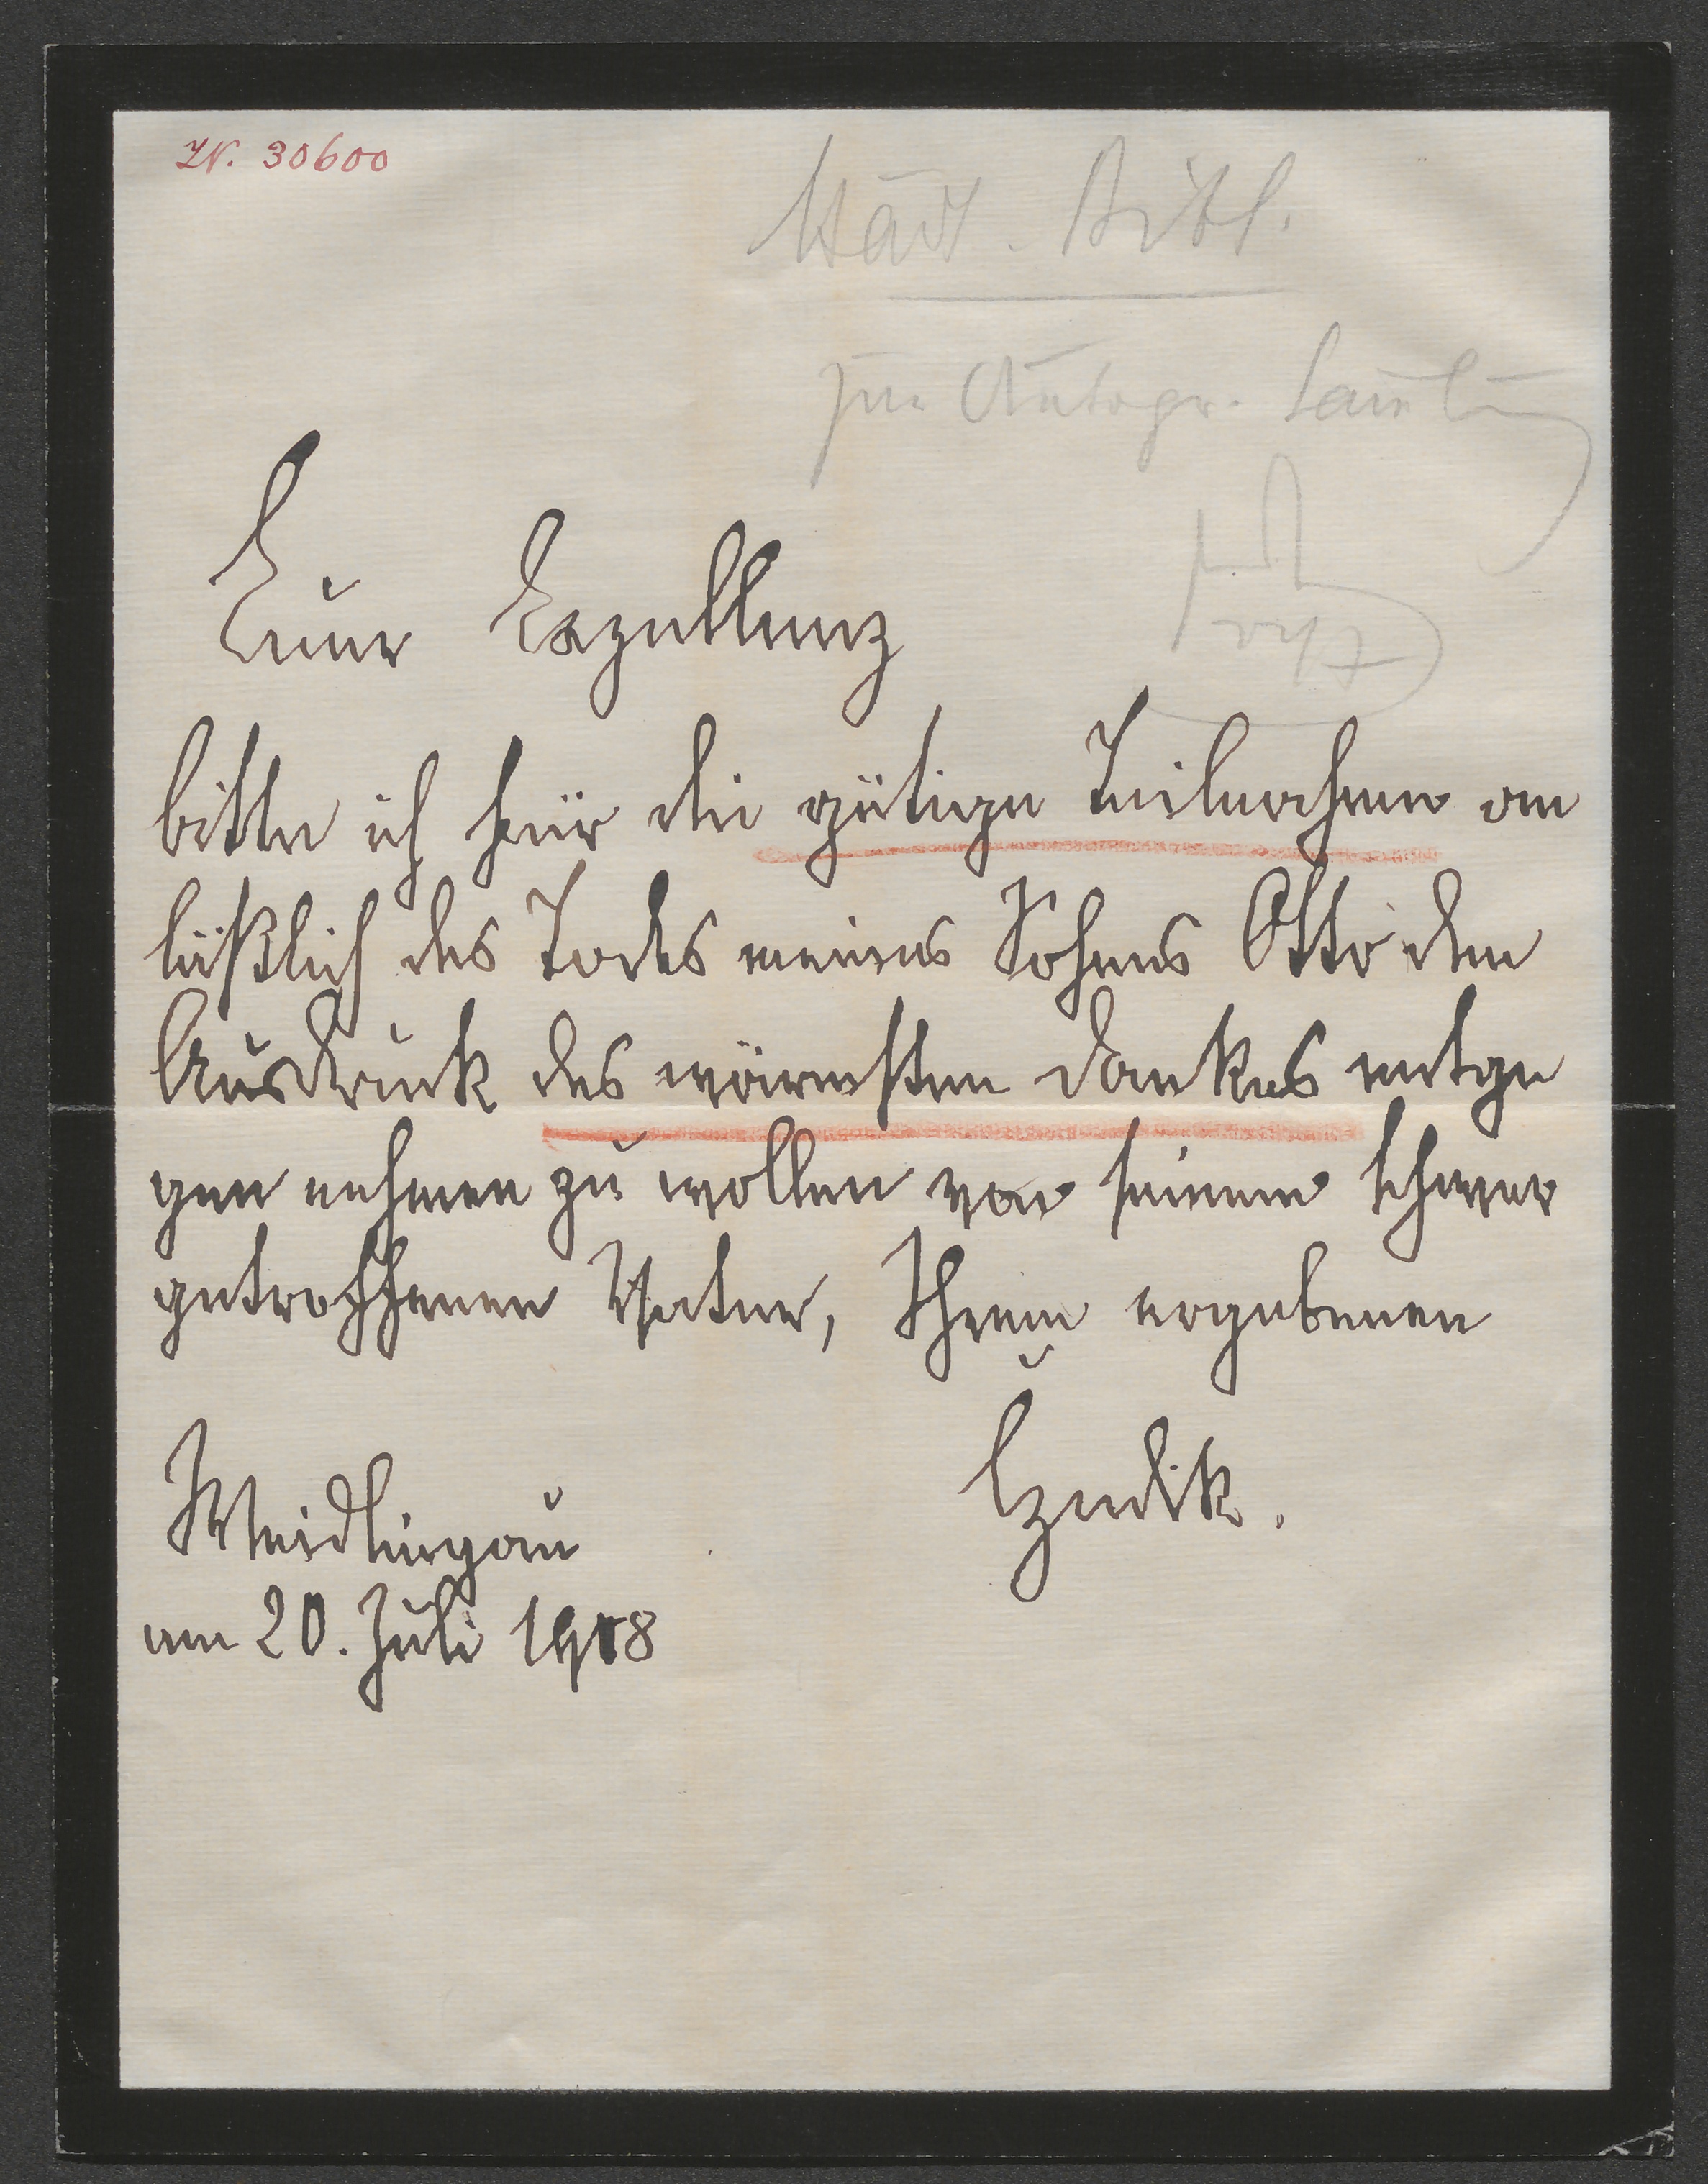 IN. 30600
Städt. Bibl.
zur Autogr. Samlung
Euer Exzellenz
bitte ich für die gütige Teilnahme an
läßlich des Todes meines Sohnes Otto den
Ausdruck des wärmsten Dankes entge
gen nehmen zu wollen von seinem schwer
getroffenen Vater, Ihrem ergebenen
Czedik.
Weidlingau
am 20. Juli 1918